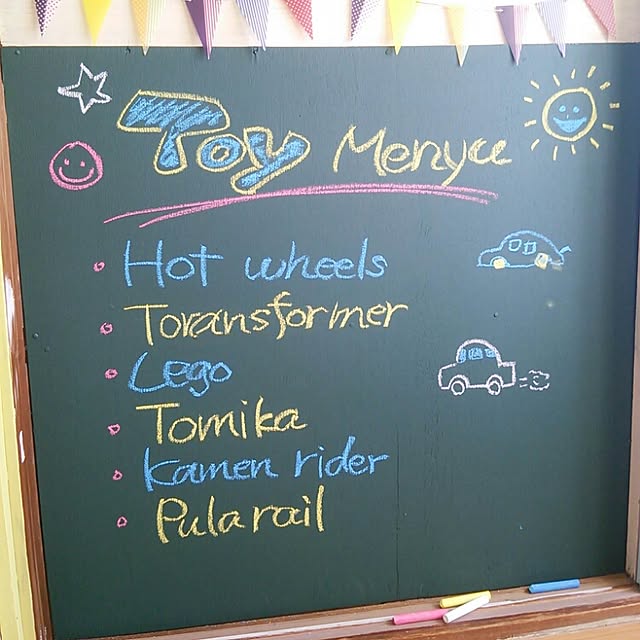 Toy Menyu
Hot wheels
Toransformer
Lego
Tomika
Kamen rider
Pula rail